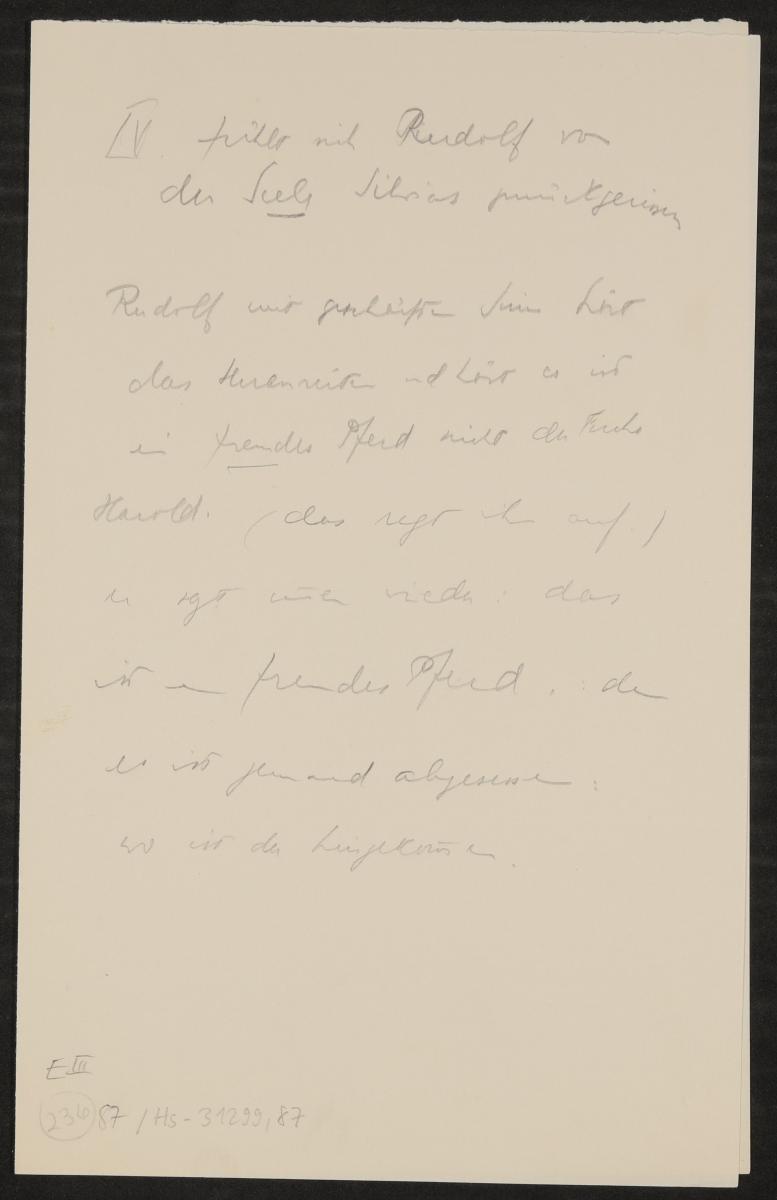 IV fühlt sich Rudolf von
der Seele Silvias zurückgerissen
Rudolf mit geschärften Sinn hört
das Heranreiten und hört es ist
ein fremdes Pferd nicht der Fuchs
Harold. (das regt ihn auf.)
er sagt immer wieder: das
ist ein fremdes Pferd. : denn
es ist jemand abgesessen:
wo ist der hingekommen.
E III
236 87 / Hs-31299,87